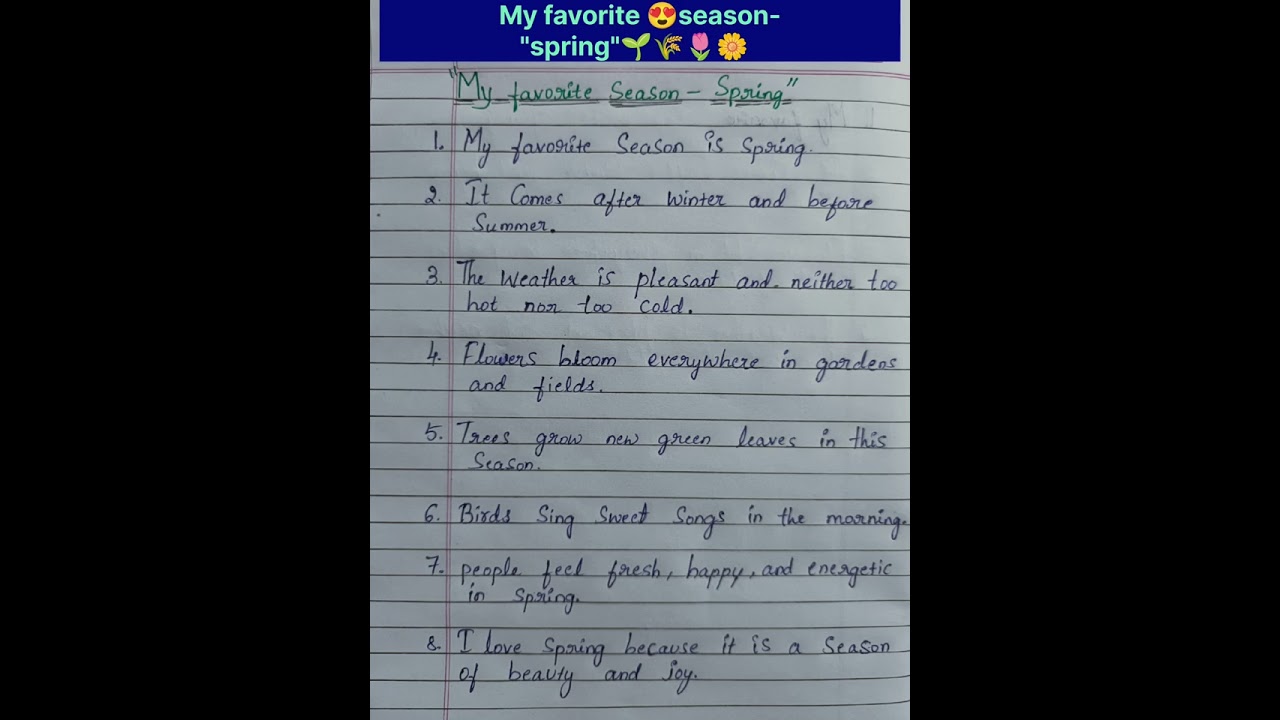 My favorite 😍season-
"spring"🌱🌾🌷🌼
"My favorite Season - Spring"
1. My favorite Season is Spring.
2. It Comes after winter and before
Summer.
3. The Weather is pleasant and neither too
hot nor too cold.
4. Flowers bloom everywhere in gardens
and fields.
5. Trees grow new green leaves in this
Season.
6. Birds Sing Sweet Songs in the morning.
7. people feel fresh, happy, and energetic
in Spring.
8. I love Spring because it is a Season
of beauty and joy.